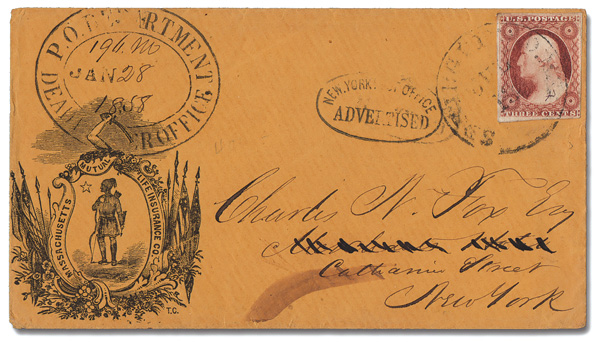 P.O. DEPARTMENT
196. M
JAN 28
1858
DEAD LETTER OFFICE
NEW YORK POST OFFICE
ADVERTISED
U.S. POSTAGE
THREE CENTS
MASSACHUSETTS MUTUAL LIFE INSURANCE CO.
T.C.
Charles N. Fox Esq
Catharine Street
New York